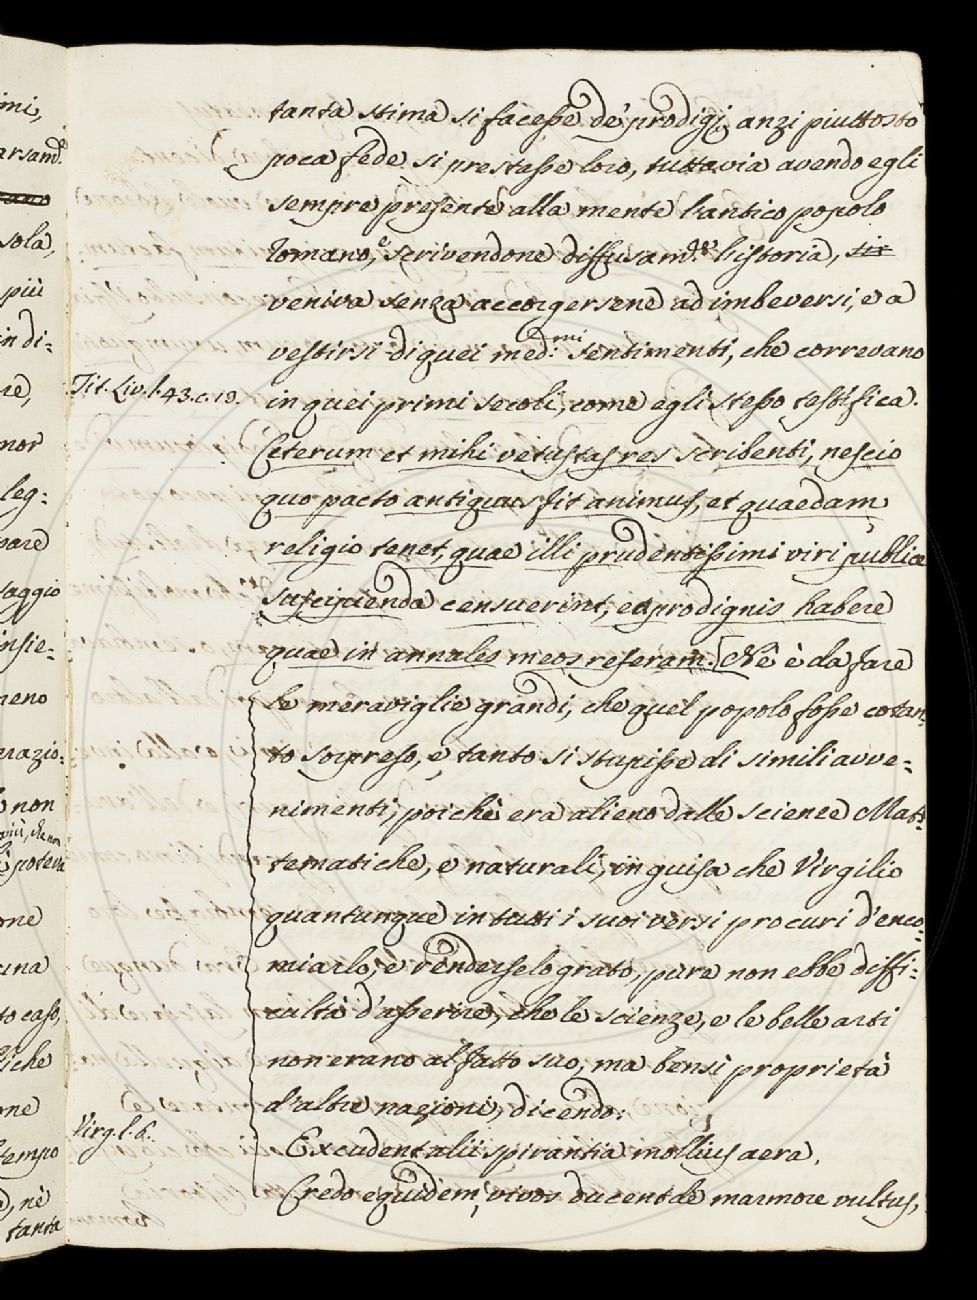 tanta stima si facesse de' prodigj, anzi piuttosto
poca fede si prestasse loro, tuttavia avendo egli
sempre presente alla mente l'antico popolo
Romano, e scrivendone diffusam.te l'istoria,
veniva senza accorgersene ad imbeversi, e a
vestirsi di quei med:mi sentimenti, che correvano
Tit. Liv. l. 43. c. 19.
in quei primi secoli, come egli stesso testifica.
Ceterum et mihi vetustas res scribenti, nescio
quo pacto antiquus fit animus, et quaedam
religio tenet, quae illi prudentissimi viri publice
suscipienda censuerint, ea pro dignis habere
quae in annales meos referam. [Nè è da fare
le meraviglie grandi, che quel popolo fosse cotan-
to sorpreso, e tanto si stupisse di simili avve=
nimenti, poichè era alieno dalle scienze Mat=
tematiche, e naturali, in guisa che Virgilio
quantunque in tutti i suoi versi procuri d'enco=
miarlo, e renderselo grato, pure non ebbe diffi=
cultà d'asserire, che le scienze, e le belle arti
non erano al fatto suo, ma bensì proprietà
d'altre nazioni, dicendo:
Virg. l. 6.
Excudent alii spirantia mollius aera,
Credo equidem, vivos ducent de marmore vultus,
mi,
arsam.te
sola,
più
in di=
re,
nor
leg=
pare
faggio
insie=
meno
razio=
non
più, che non
poteva
one
una
to caso,
liche
one
tempo
, nè
tanta